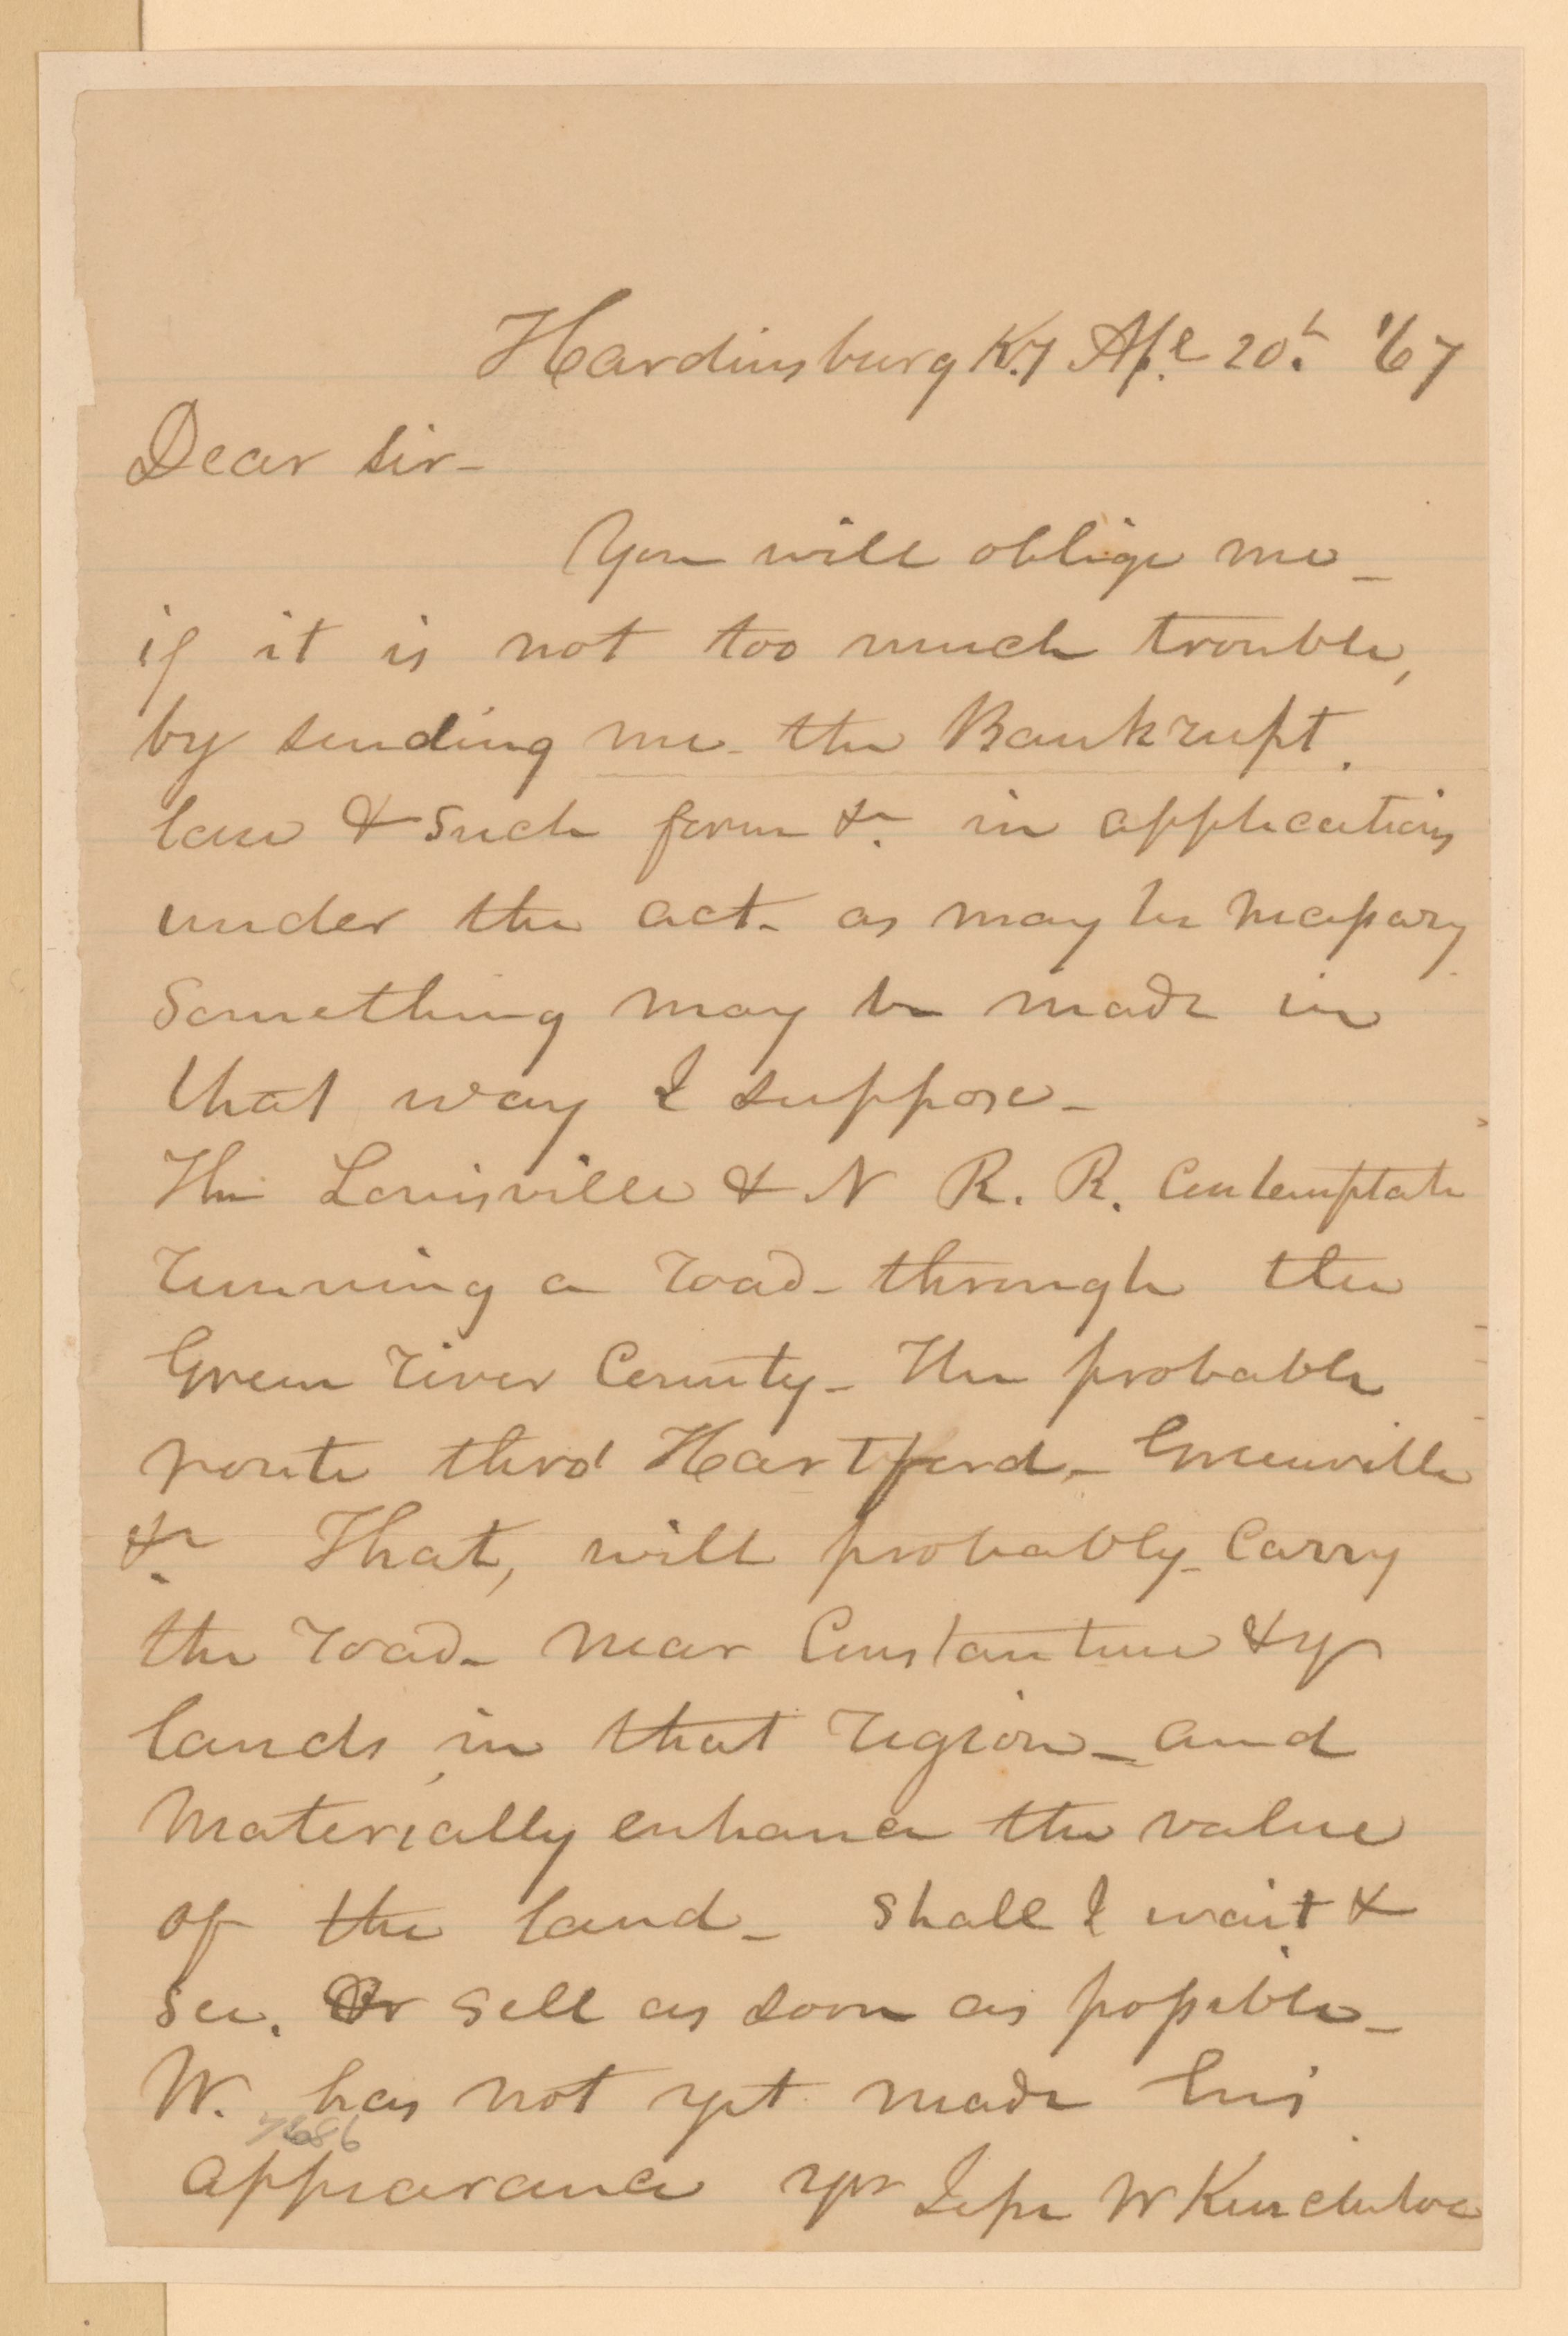 Hardinsburg Ky Apl 20th '67
Dear Sir-
You will oblige me-
if it is not too much trouble,
by sending me the Bankrupt
law & such form &c in applications
under the act- as may be necessary
Something may be made in
that way I suppose-
The Louisville & N R. R. Contemplate
running a road- through the
Green River County- The probable
route thro' Hartford- Greenville
&c That, will probably- Carry
the road- near Constantine & yr
lands in that region- and
Materially enhance the value
of the land- Shall I wait &
see. Or sell as soon as possible-
W. has not yet made his
appearance yrs Jesse W Kincheloe
7686